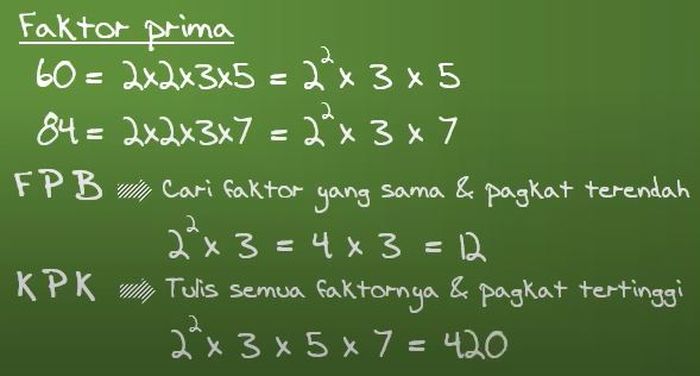 Faktor prima
60 = 2x2x3x5 = 2² x 3 x 5
84 = 2x2x3x7 = 2² x 3 x 7
FPB Cari faktor yang sama & pagkat terendah
2² x 3 = 4 x 3 = 12
KPK Tulis semua faktornya & pagkat tertinggi
2² x 3 x 5 x 7 = 420